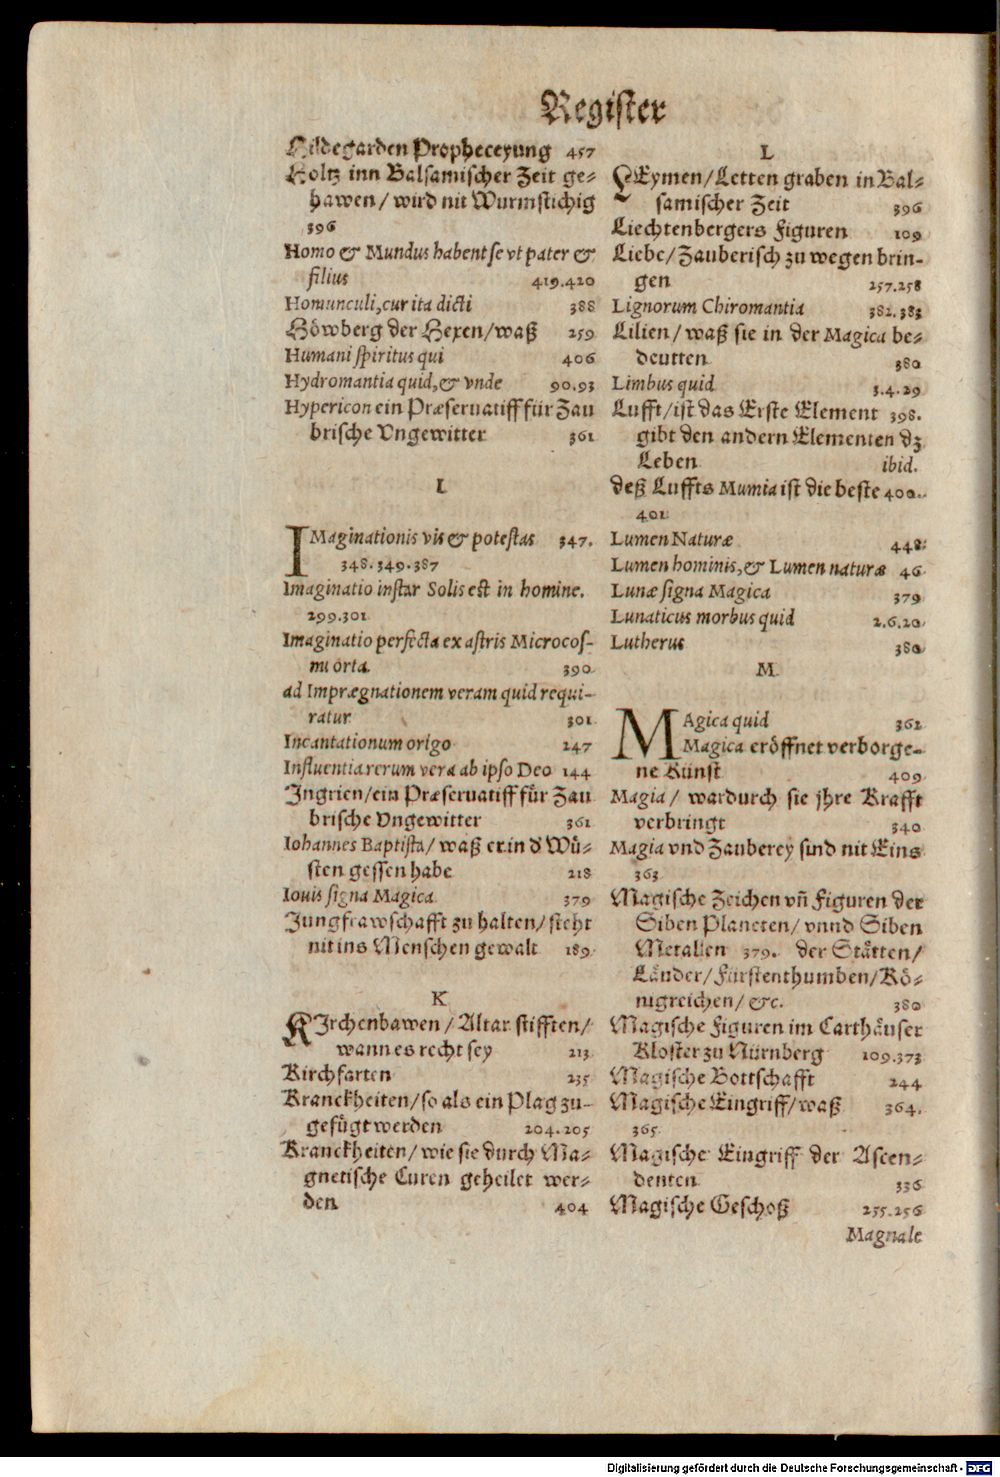 Register
Hildegarden Propheceyung 457
Holtz inn Balsamischer Zeit ge⸗
hawen / wird nit Wurmstichig
396
Homo & Mundus habent se vt pater &
filius 419.420
Homunculi, cur ita dicti 388
Höwberg der Hexen / waß 259
Humani spiritus qui 406
Hydromantia quid, & vnde 90.93
Hypericon ein Præseruatiff für Zau
brische Vngewitter 361
I
IMaginationis vis & potestas 347.
348.349.387
Imaginatio instar Solis est in homine.
299.301
Imaginatio perfecta ex astris Microcos-
mi orta 390
ad Imprægnationem veram quid requi-
ratur 301
Incantationum origo 247
Influentia rerum vera ab ipso Deo 144
Ingrien / ein Præseruatiff für Zau
brische Vngewitter 361
Iohannes Baptista / waß er in d' Wü⸗
sten gessen habe 218
Iouis signa Magica 379
Jungfrawschafft zu halten / steht
nit ins Menschen gewalt 189
K
KIrchenbawen / Altar stifften /
wann es recht sey 213
Kirchfarten 235
Kranckheiten / so als ein Plag zu-
gefügt werden 204.205
Kranckheiten / wie sie durch Ma⸗
gnetische Curen geheilet wer⸗
den 404
L
LEymen / Letten graben in Bal⸗
samischer Zeit 396
Liechtenbergers Figuren 109
Liebe / Zauberisch zu wegen brin-
gen 257.258
Lignorum Chiromantia 382.383
Lilien / waß sie in der Magica be⸗
deutten 380
Limbus quid 3.4.29
Lufft / ist das Erste Element 398.
gibt den andern Elementen dz
Leben ibid.
deß Luffts Mumia ist die beste 400.
401
Lumen Naturæ 448
Lumen hominis, & Lumen naturæ 46
Lunæ signa Magica 379
Lunaticus morbus quid 2.6.20
Lutherus 380
M
MAgica quid 362
Magica eröffnet verborge-
ne Künst 409
Magia / wardurch sie jhre Krafft
verbringt 340
Magia vnd Zauberey sind nit Eins
363
Magische Zeichen vñ Figuren der
Siben Planeten / vnnd Siben
Metallen 379. der Stätten /
Länder / Fürstenthumben / Kö⸗
nigreichen / &c. 380
Magische Figuren im Carthäuser
Kloster zu Nürnberg 109.373
Magische Bottschafft 244
Magische Eingriff / waß 364.
365
Magische Eingriff der Ascen⸗
denten 336
Magische Geschoß 255.256
Magnale
Digitalisierung gefördert durch die Deutsche Forschungsgemeinschaft - DFG